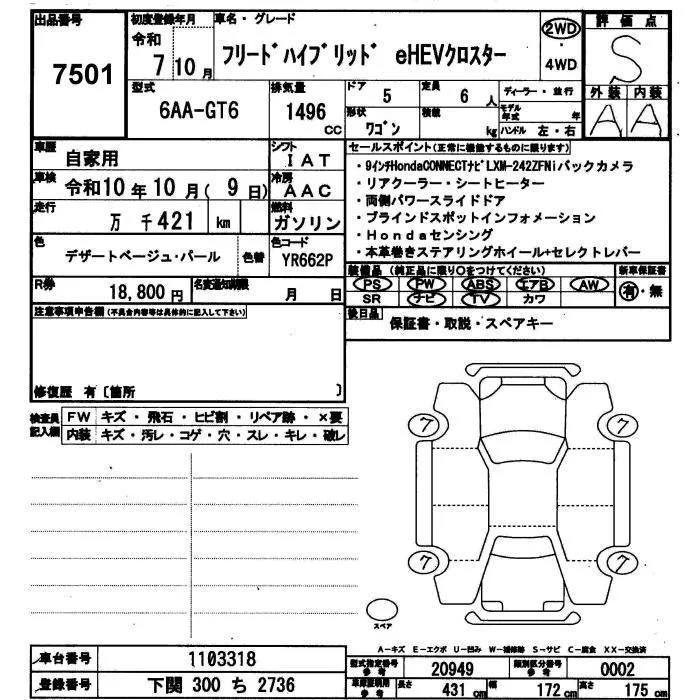 出品番号
7501
初度登録年月
令和
7 10 月
車名・グレード
フリードハイブリッド eHEVクロスター
2WD
・
4WD
評価点
S
外装 内装
A A
型式
6AA-GT6
排気量
1496
cc
ドア
5
定員
6 人
形状
ワゴン
積載
kg
ディーラー・並行
モデル年式 年
ハンドル 左・右
車歴
自家用
シフト
IAT
車検
令和10年10月( 9日)
冷房
AAC
走行
万 千421 km
燃料
ガソリン
色
デザートベージュ・パール
色替
色コード
YR662P
R券
18,800 円
名変通知期限
月 日
セールスポイント(正常に機能するものに限ります)
・9インチHondaCONNECTナビLXM-242ZFNiバックカメラ
・リアクーラー・シートヒーター
・両側パワースライドドア
・ブラインドスポットインフォメーション
・Hondaセンシング
・本革巻きステアリングホイール+セレクトレバー
装備品(純正品に限り○をつけてください)
PS PW ABS エアB AW
SR ナビ TV カワ
新車保証書
有・無
後日品
保証書・取説・スペアキー
注意事項申告欄(不具合内容等は具体的に記入して下さい)
修復歴 有〔箇所 〕
検査員
記入欄
FW キズ・飛石・ヒビ割・リペア跡・×要
内装 キズ・汚レ・コゲ・穴・スレ・キレ・破レ
7 7
7 7
スペア
A-キズ E-エクボ U-凹み W-補修跡 S-サビ C-腐食 XX-交換済
車台番号
1103318
登録番号
下関 300 ち 2736
型式指定番号
参考
20949
類別区分番号
参考
0002
参考
長さ
431 cm
幅
172 cm
高さ
175 cm